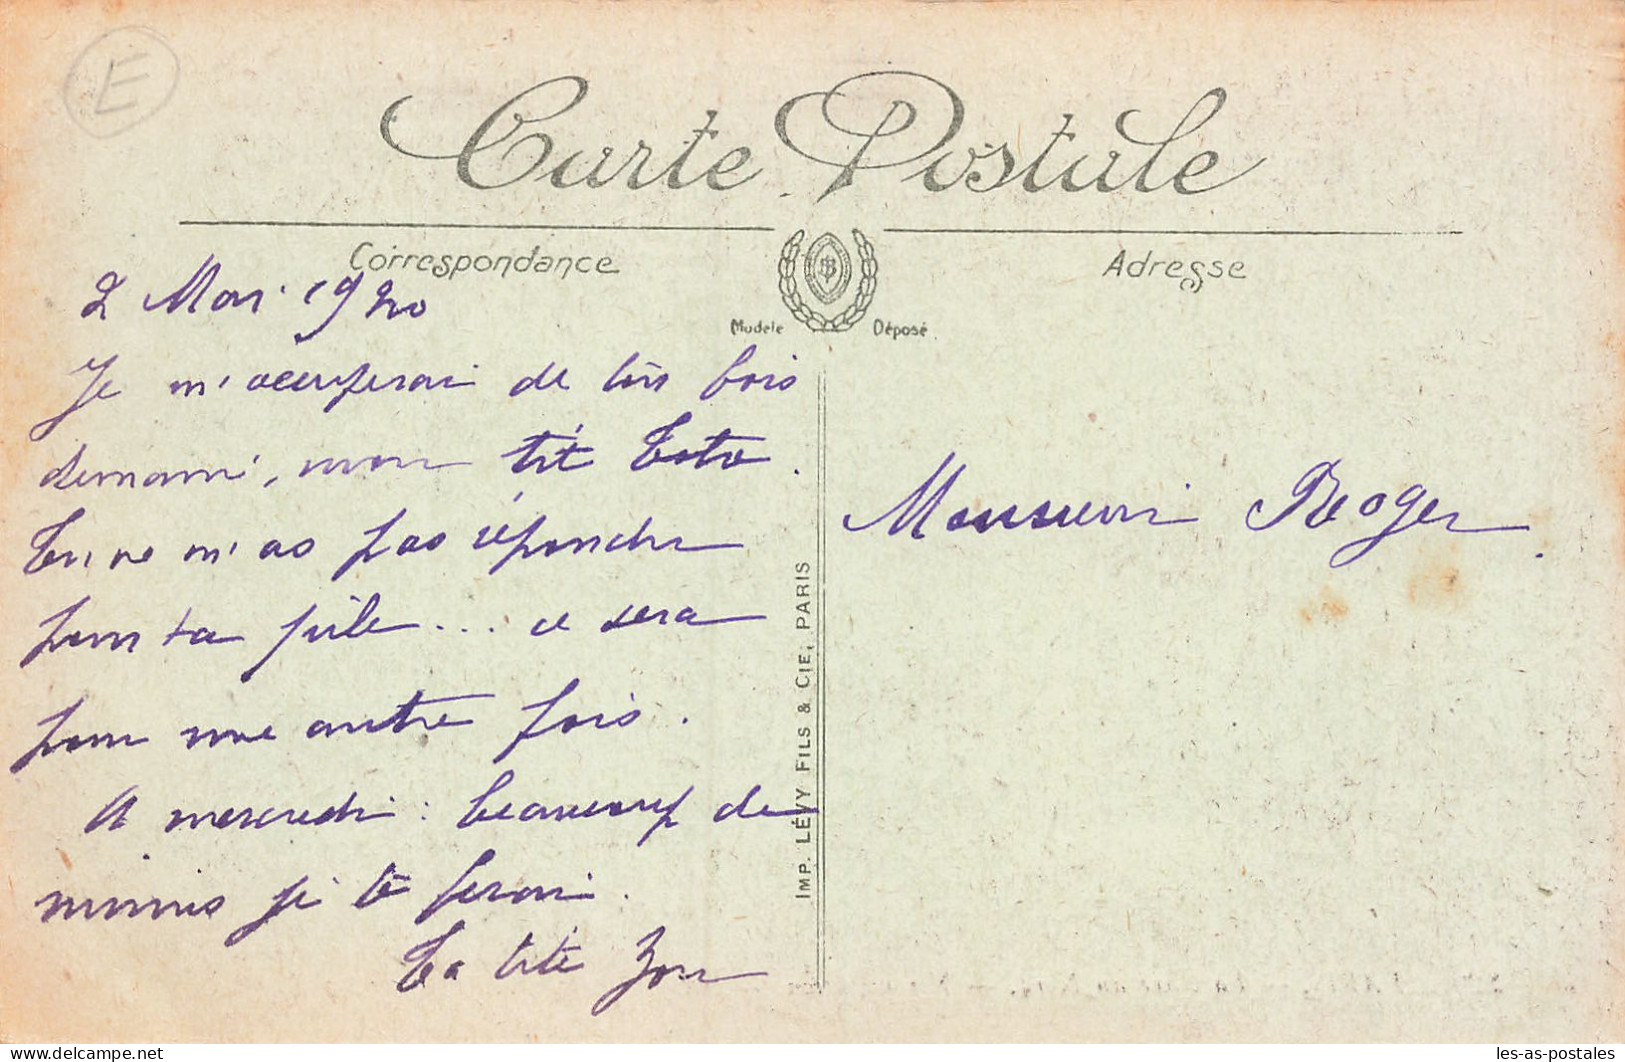 E
Carte Postale
Correspondance
Adresse
Modèle Déposé
2 Mai 1920
Je m'occuperai de tes bois
demain, mon tit Toto.
Tu ne m'as pas répondu
pour ta pile... ce sera
pour une autre fois.
A mercredi : beaucoup de
mimis je te ferai.
Ta tite Zou
Monsieur Roger.
IMP. LÉVY FILS & CIE, PARIS
delcampe.net
les-as-postales